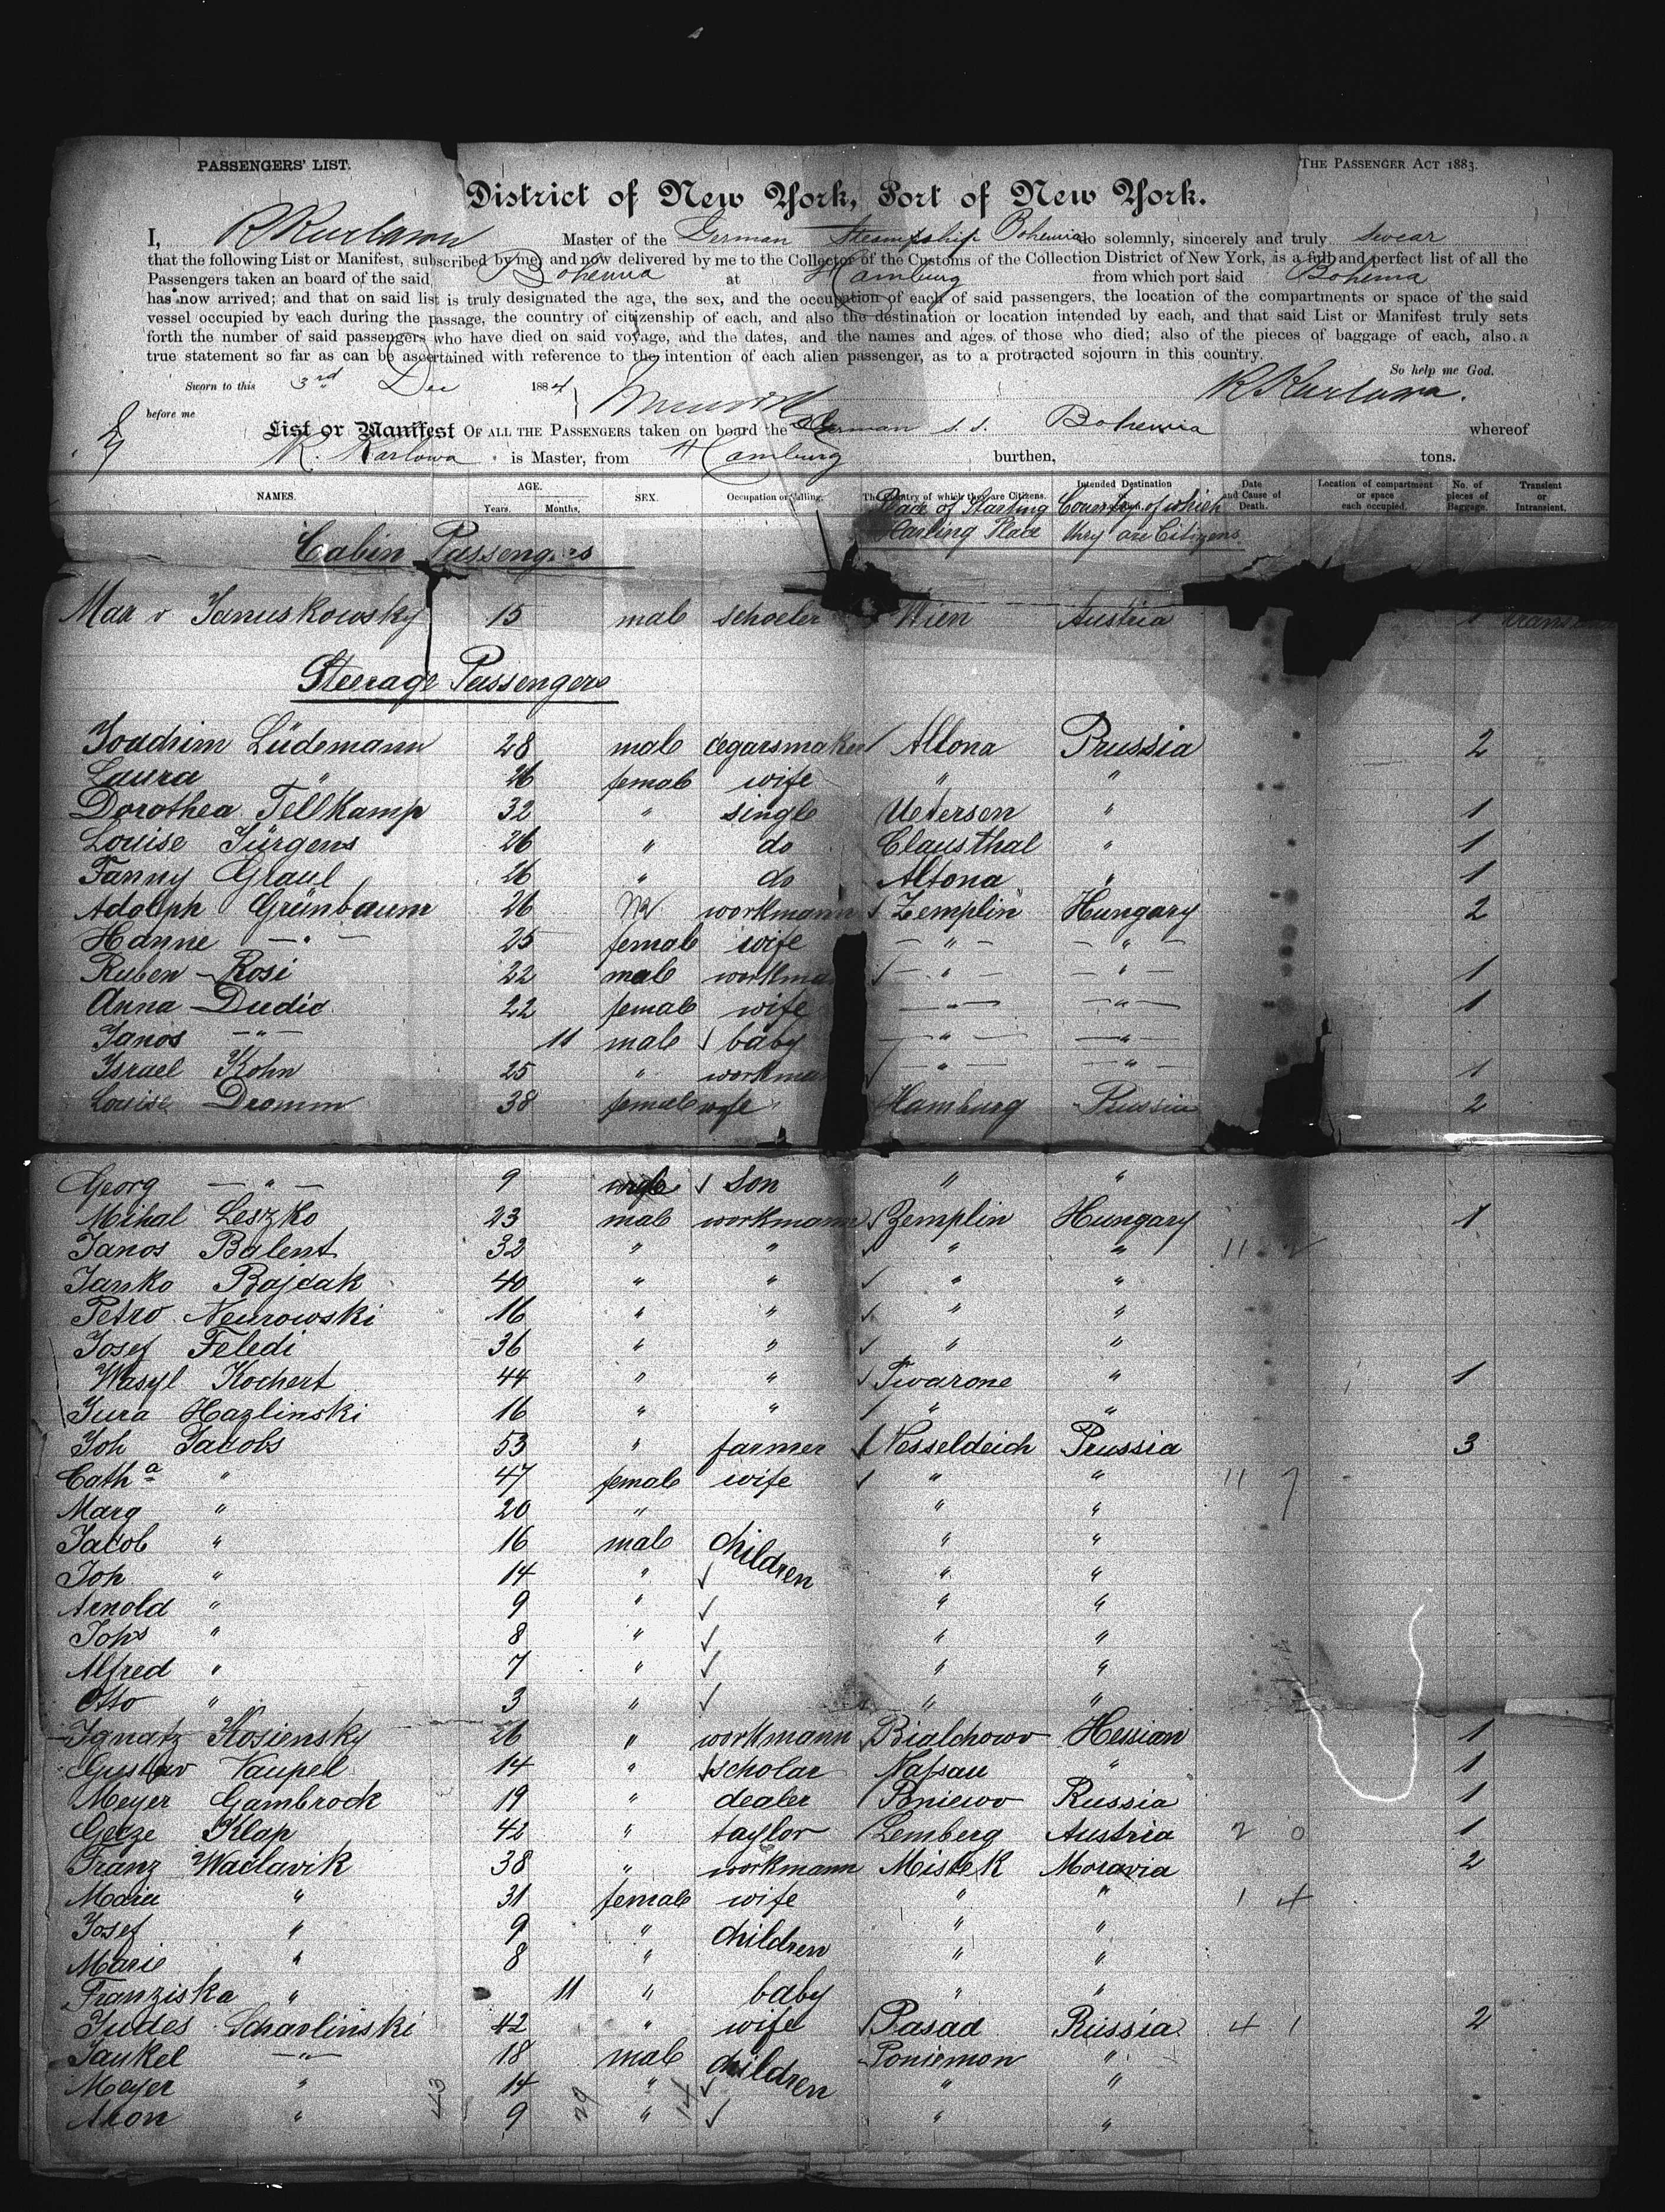 PASSENGERS' LIST.
THE PASSENGER ACT 1883.
District of New York, Port of New York.
I, R Karlowa Master of the German Steamship Bohemia do solemnly, sincerely and truly swear
that the following List or Manifest, subscribed by me, and now delivered by me to the Collector of the Customs of the Collection District of New York, is a full and perfect list of all the
Passengers taken on board of the said Bohemia at Hamburg from which port said Bohemia
has now arrived; and that on said list is truly designated the age, the sex, and the occupation of each of said passengers, the location of the compartments or space of the said
vessel occupied by each during the passage, the country of citizenship of each, and also the destination or location intended by each, and that said List or Manifest truly sets
forth the number of said passengers who have died on said voyage, and the dates, and the names and ages of those who died; also of the pieces of baggage of each, also a
true statement so far as can be ascertained with reference to the intention of each alien passenger, as to a protracted sojourn in this country.
So help me God.
Sworn to this 3rd Dec 1884
R Karlowa.
before me
List or Manifest OF ALL THE PASSENGERS taken on board the German s. s. Bohemia whereof
R. Karlowa is Master, from Hamburg burthen, tons.
NAMES. AGE. Years. Months. SEX. Occupation or Calling. The Country of which they are Citizens. Intended Destination Date and Cause of Death. Location of compartment or space each occupied. No. of pieces of Baggage. Transient or Intransient.
Place of Starting Country of which
Starling Place they are Citizens
Cabin Passengers
Max v Januskowsky 15 male schoeler Wien Austria 1
Steerage Passengers
Joachim Lüdemann 28 male cegarsmaker Altona Prussia 2
Laura " 26 female wife " "
Dorothea Tellkamp 32 " single Uetersen " 1
Louise Jürgens 26 " do Clausthal " 1
Fanny Graul 26 " do Altona " 1
Adolph Grünbaum 26 M workmann Zemplin Hungary 2
Hanne — " — 25 female wife — " — — " —
Ruben Rosi 22 male workman — " — — " — 1
Anna Dudic 22 female wife — " — — " — 1
Janos — " — 11 male baby — " — — " —
Israel Kohn 25 " workman — " — — " — 1
Louise Dromm 38 female wife Hamburg Prussia 2
Georg — " — 9 son " "
Mihal Leszko 23 male workmann Zemplin Hungary 1
Janos Balent 32 " " " " 11 2
Janko Bajdak 40 " " " "
Petro Neurowski 16 " " " "
Josef Feledi 36 " " " "
Wasyl Kochert 44 " " Twarone " 1
Jura Hazlinski 16 " " " "
Joh Jacobs 53 " farmer Nesseldeich Prussia 3
Cath a " 47 female wife " " 11 7
Marg " 20 " " "
Jacob " 16 male children " "
Joh " 14 " " "
Arnold " 9 " " "
Johs " 8 " " "
Alfred " 7 " " "
Otto " 3 " " "
Ignatz Kosiensky 26 " workmann Bialchowo Hessian 1
Gustav Vaupel 14 " scholar Nassau " 1
Meyer Gambrock 19 " dealer Poniewo Russia 1
Getze Klap 42 " taylor Lemberg Austria 2 0 1
Franz Waclavik 38 " workmann Mistek Moravia 2
Marie " 31 female wife " " 1 4
Josef " 9 " children " "
Marie " 8 " " "
Franziska " 11 " baby " "
Judes Scharlinski 42 " wife Pasad Russia 4 1 2
Jankel — " — 18 male children Poniemon "
Meyer " 14 " " "
Aron " 9 " " "
43 29 14